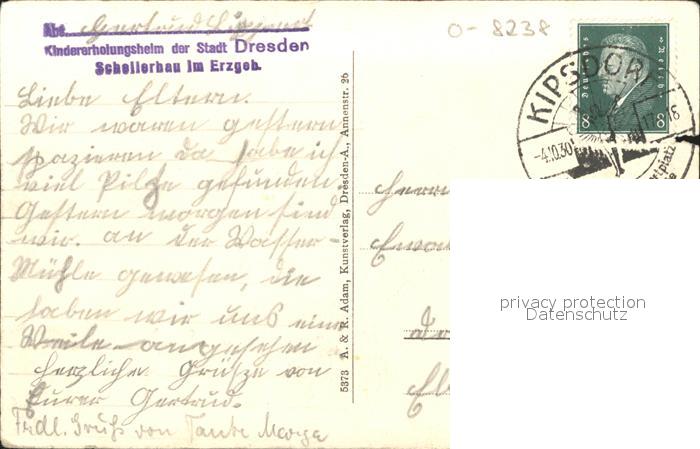 Abs. Gertrud
Kindererholungsheim der Stadt Dresden
Schellerhau im Erzgeb.
Liebe Eltern.
Wir waren gestern
spazieren da habe ich
viel Pilze gefunden.
Gestern morgen sind
wir an der Wasser-
Mühle gewesen, die
haben wir uns eine
Weile angesehen
herzliche Grüße von
Eurer Gertrud.
Frdl. Gruß von Tante
5373 A. & R. Adam, Kunstverlag, Dresden-A., Annenstr. 26
0-8238
Deutsches Reich
8 8
KIPSDORF
-4.10.30
Herrn
privacy protection
Datenschutz